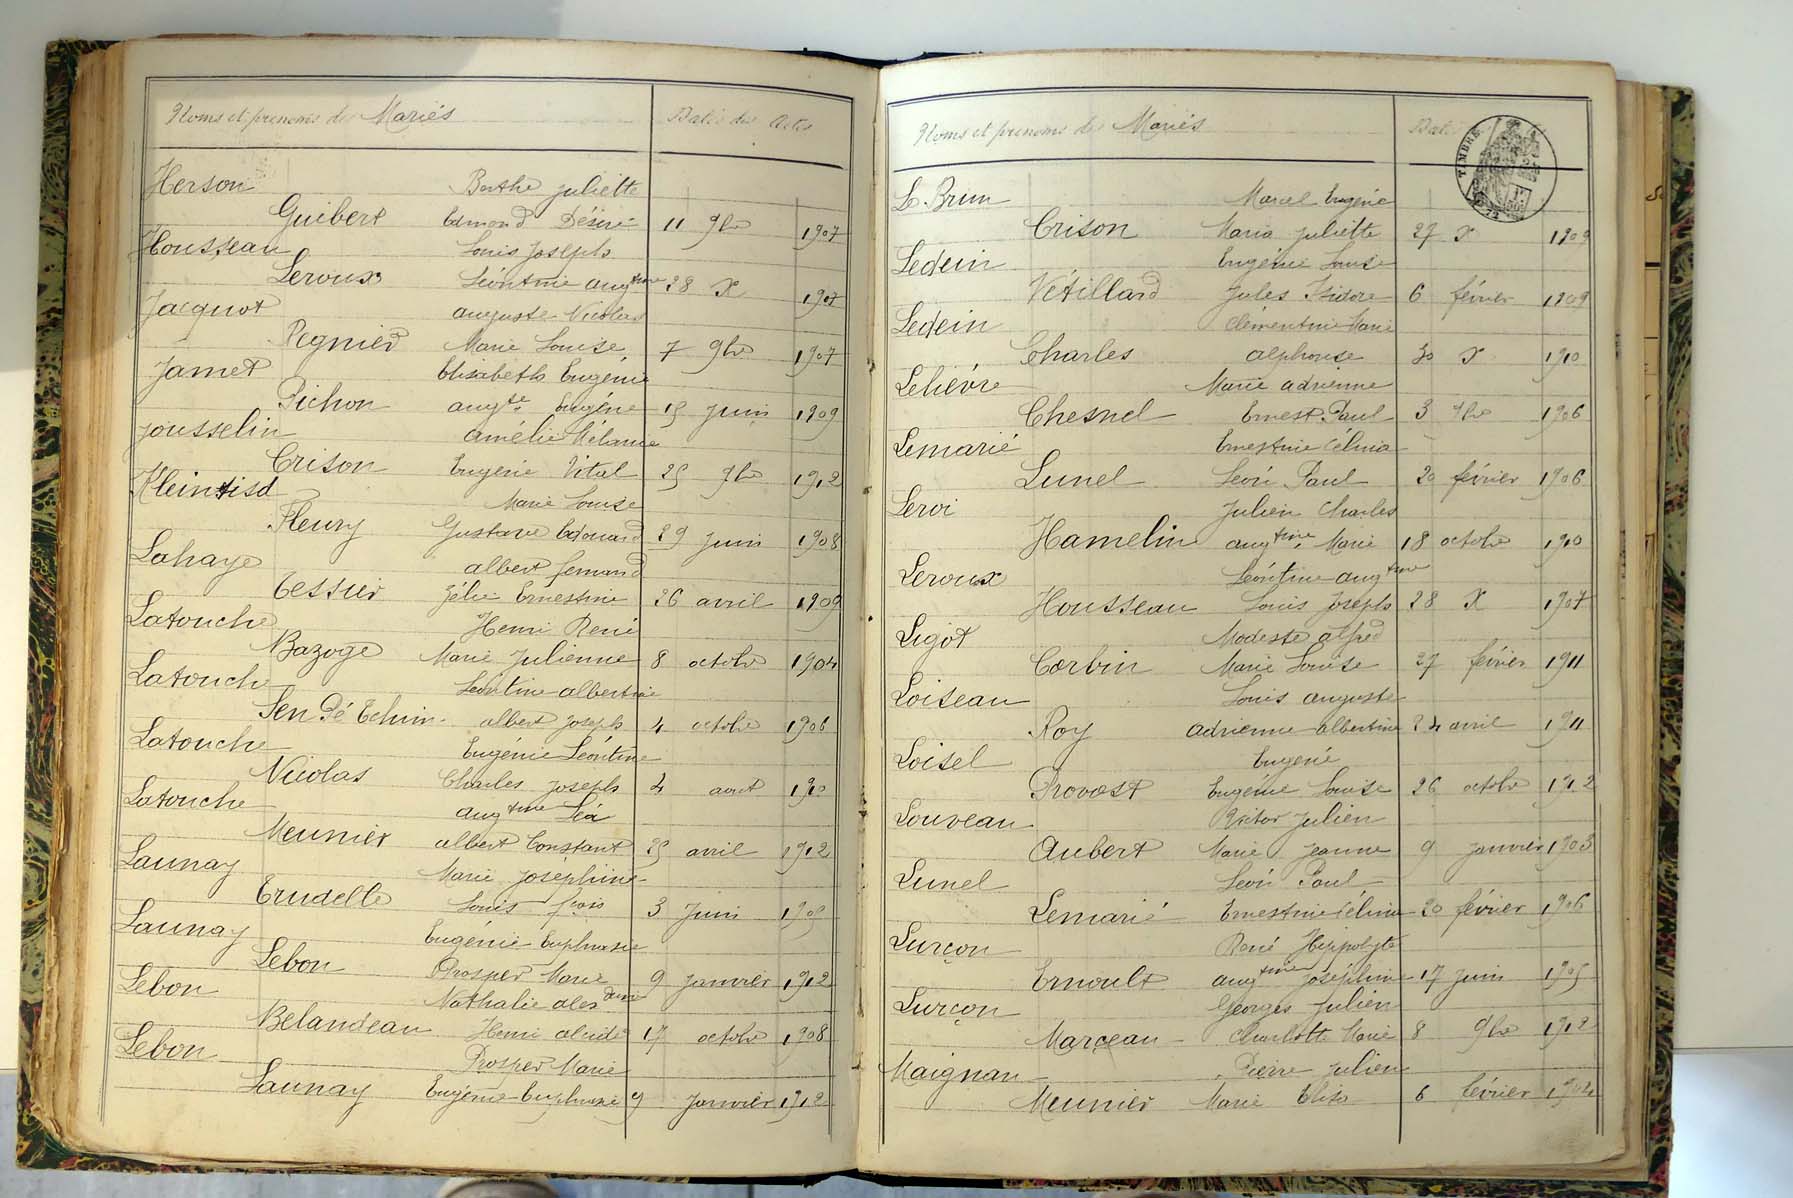 Noms et prénoms des Mariés Dates des Actes
Herson Berthe Juliette
Guibert Edmond Désiré 11 9bre 1907
Housseau Louis Joseph
Leroux Léontine Augtine 28 X 1907
Jacquot Auguste Nicolas
Regnier Marie Louise 7 9bre 1907
Jamet Elisabeth Eugénie
Pichon Augte Eugène 15 Juin 1909
Jousselin Amélie Mélanie
Crison Eugène Vital 25 9bre 1912
Marie Louise
Fleury Gustave Edouard 29 Juin 1908
Lahaye Albert Fernand
Tessier Zélie Ernestine 26 avril 1909
Latouche Henri René
Bazoge Marie Julienne 8 octobre 1904
Latouche Léontine Albertine
Albert Joseph 4 octobre 1906
Latouche Eugénie Léontine
Nicolas Charles Joseph 4 aout 1910
Latouche Augtine Léa
Meunier Albert Constant 25 avril 1912
Launay Marie Joséphine
Trudelle Louis fçois 3 Juin 1905
Launay Eugénie Euphrasie
Lebon Prosper Marie 9 Janvier 1912
Lebon Nathalie Alexdrine
Belandeau Henri Alcide 17 octobre 1908
Lebon Prosper Marie
Launay Eugénie Euphrasie 9 Janvier 1912
Noms et prénoms des Mariés Dates
TIMBRE
Le Brun Marcel Eugène
Crison Maria Juliette 27 X 1909
Ledein Eugénie Louise
Vétillard Jules Isidore 6 février 1909
Ledein Clémentine Marie
Charles Alphonse 30 X 1910
Lelièvre Marie Adrienne
Chesnel Ernest Paul 3 1906
Lemarié Ernestine Célina
Lunel Léon Paul 20 février 1906
Leroi Julien Charles
Hamelin Augtine Marie 18 octobre 1910
Leroux Léontine Augtine
Housseau Louis Joseph 28 X 1907
Ligot Modeste Alfred
Corbin Marie Louise 27 février 1911
Loiseau Louis Auguste
Roy Adrienne Albertine 24 avril 1911
Loisel Eugène
Provost Eugénie Louise 26 octobre 1912
Louveau Victor Julien
Aubert Marie Jeanne 9 Janvier 1903
Lunel Léon Paul
Lemarié Ernestine Célina 20 février 1906
Lurçon René Hippolyte
Ernoult Augtine Joséphine 17 Juin 1905
Lurçon Georges Julien
Marçeau Charlotte Marie 8 9bre 1912
Maignan Pierre Julien
Meunier Marie Elisa 6 février 1904